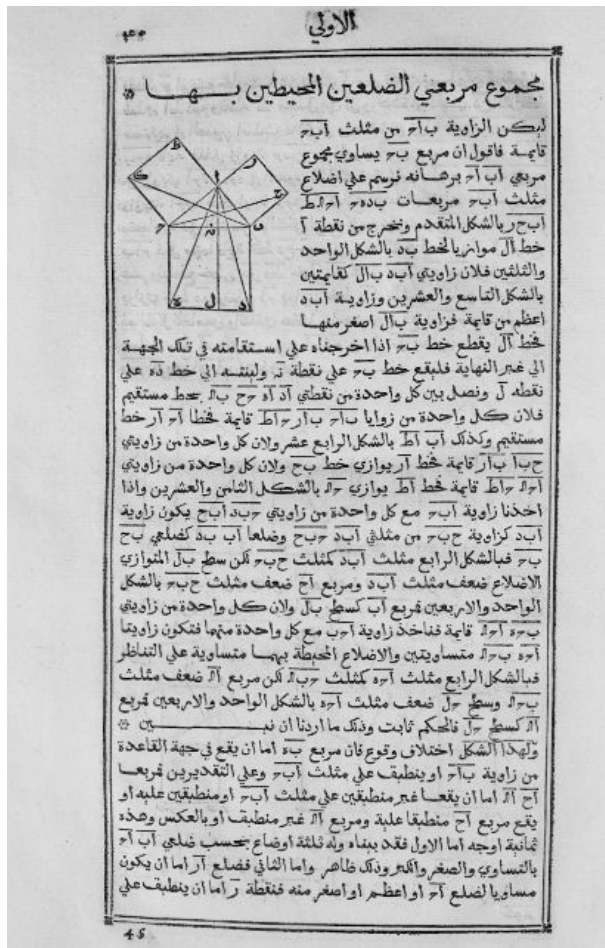 الاولي
مجموع مربعي الضلعين المحيطين بــها *
ليكن الزاوية ب‍ا‍ج من مثلث اب‍ج
قايمة فاقول ان مربع ب‍ج يساوي مجموع
مربعي اب اج برهانه نرسم علي اضلاع
مثلث اب‍ج مربعات
بالشكل المتقدم ونخرج من نقطة ا
خط ال موازيا لخط بد بالشكل الواحد
والثلثين فلان زاويتي ابد بال كقايمتين
بالشكل التاسع والعشرين وزاوية ابد
اعظم من قايمة فزاوية بال اصغر منها
فخط ال يقطع خط ب‍ج اذا اخرجناه علي استقامته في تلك الجهة
الي غير النهاية فليقع خط ب‍ج علي نقطة ن ولينته الي خط ده علي
نقطه ل ونصل بين كل واحدة من نقطتي اد اه جح بك بخط مستقيم
فلان كل واحدة من زوايا باج بار جاط قايمة فخطا اج ار خط
مستقيم وكذلك اب اط بالشكل الرابع عشر ولان كل واحدة من زاويتي
حبا بار قايمة فخط ار يوازي خط بح ولان كل واحدة من زاويتي
اجك جاط قايمة فخط اط يوازي جك بالشكل الثامن والعشرين واذا
اخذنا زاوية ابج مع كل واحدة من زاويتي جبد ابح يكون زاوية
ابد كزاوية حبج من مثلثي ابد جبح وضلعا اب بد كضلعي بح
بج فبالشكل الرابع مثلث ابد كمثلث حبج لكن سطح بل المتوازي
الاضلاع ضعف مثلث ابد ومربع اح ضعف مثلث حبج بالشكل
الواحد والاربعين فمربع اب كسطح بل ولان كل واحدة من زاويتي
بجه اجك قايمة فناخذ زاوية اجب مع كل واحدة منهما فتكون زاويتا
اجه بجك متساويتين والاضلاع المحيطة بهما متساوية علي التناظر
فبالشكل الرابع مثلث اجه كمثلث جبك لكن مربع اك ضعف مثلث
بجك وسطح جل ضعف مثلث اجه بالشكل الواحد والاربعين فمربع
اك كسطح جل فالحكم ثابت وذلك ما اردنا ان نبــين *
ولهذا الشكل اختلاف وقوع فان مربع به اما ان يقع في جهة القاعدة
من زاوية باج او ينطبق علي مثلث ابج وعلي التقديرين فمربعا
اح اك اما ان يقعا غير منطبقين علي مثلث ابج او منطبقين عليه او
يقع مربع اح منطبقا عليه ومربع اك غير منطبق او بالعكس وهذه
ثمانية اوجه اما الاول فقد بيناه وله ثلثة اوضاع بحسب ضلعي اب اج
بالتساوي والصغر والكبر وذلك ظاهر واما الثاني فضلع ار اما ان يكون
مساويا لضلع اج او اعظم او اصغر منه فنقطة ر اما ان ينطبق علي
45